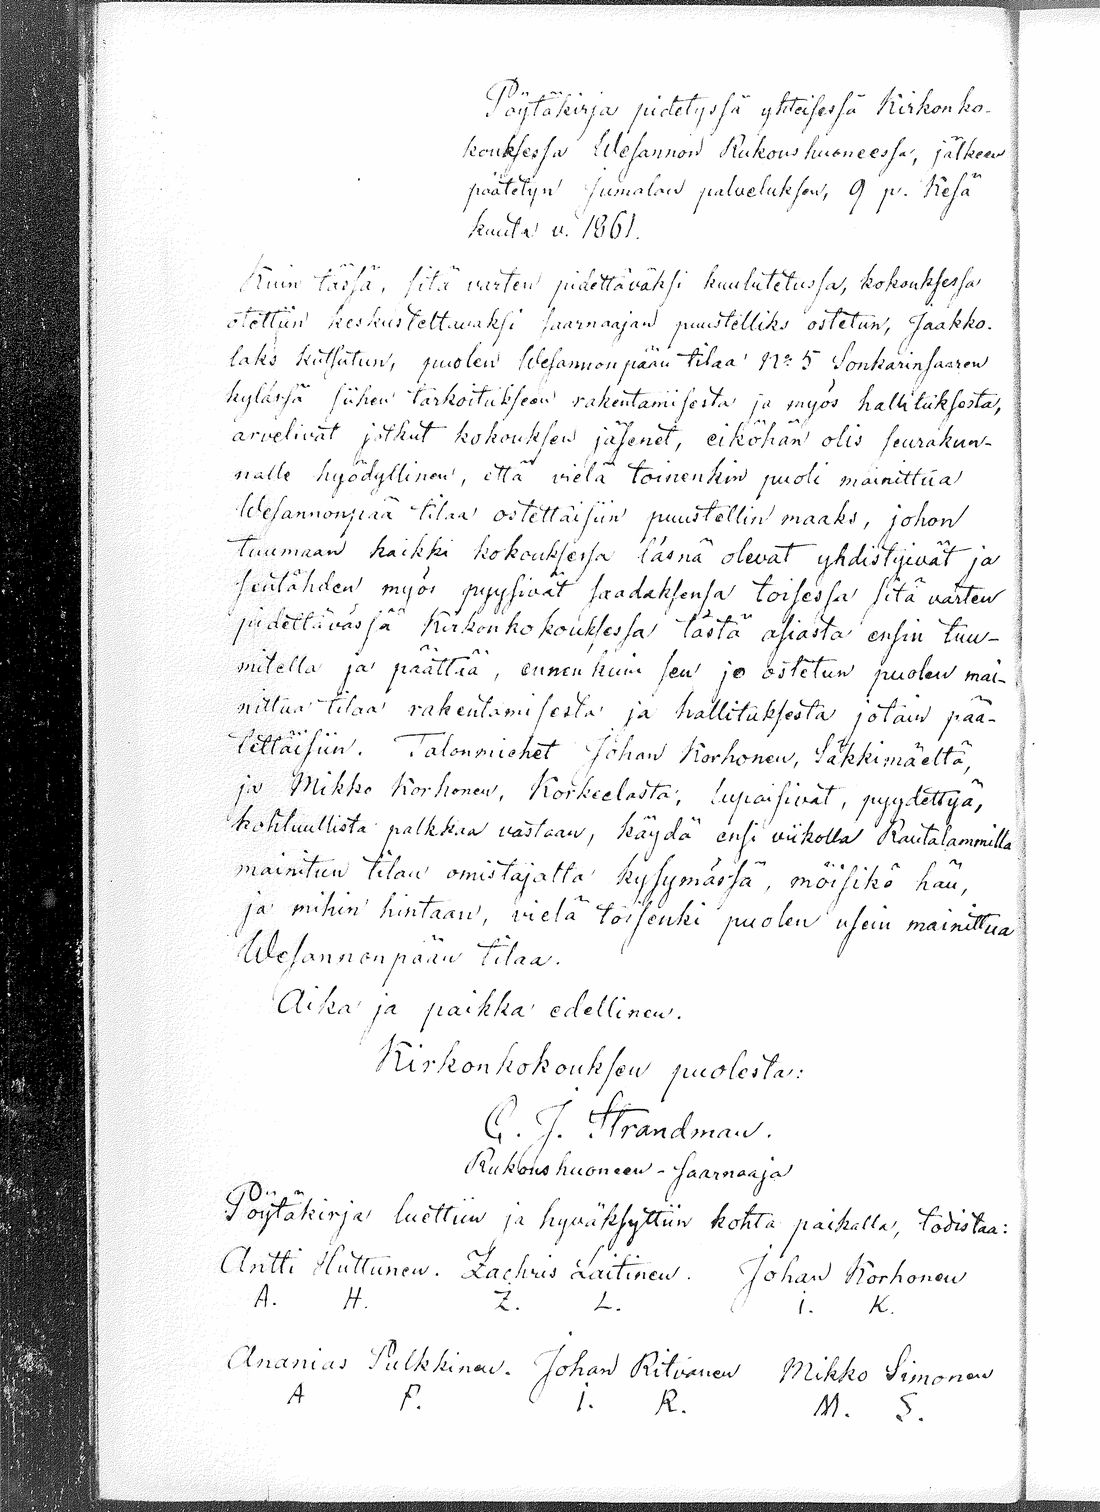 Pöytäkirja pidetyssä yhteisessä Kirkonko-
kouksessa Wesannon Rukoushuoneessa, jälkeen
päätetyn Jumalan palveluksen, 9 p. Kesä
kuuta v. 1861.
Kuin tässä, sitä varten pidettäväksi kuulutetussa, kokouksessa
otettiin keskusteltavaksi saarnaajan puustelliks ostetun, Jaakko-
laks kutsutun, puolen Wesannonpään tilaa No 5 Sonkarinsaaren
kylässä siihen tarkoitukseen rakentamisesta ja myös hallituksesta,
arvelivat jotkut kokouksen jäsenet, eiköhän olis seurakun-
nalle hyödyllinen, että vielä toinenkin puoli mainittua
Wesannonpää tilaa ostettaisiin puustellin maaks, johon
tuumaan kaikki kokouksessa läsnä olevat yhdistyivät ja
sentähden myös pyysivät saadaksensa toisessa sitä varten
pidettävässä Kirkonkokouksessa tästä asiasta ensin tuu-
mitella ja päättää, ennenkuin sen jo ostetun puolen mai-
nittua tilaa rakentamisesta ja hallituksesta jotain pää-
tettäisiin. Talonmiehet Johan Korhonen, Säkkimäeltä,
ja Mikko Korhonen, Korkeelasta, lupaisivat, pyydettyä,
kohtuullista palkkaa vastaan, käydä ensi viikolla Rautalammilla
mainitun tilan omistajalta kysymässä, möisikö hän,
ja mihin hintaan, vielä toisenki puolen usein mainittua
Wesannonpään tilaa.
Aika ja paikka edellinen.
Kirkonkokouksen puolesta:
C. J. Strandman.
Rukoushuoneen-saarnaaja
Pöytäkirja luettiin ja hyväksyttiin kohta paikalla, todistaa:
Antti Huttunen. Zachris Laitinen. Johan Korhonen
A. H. Z. L. I. K.
Ananias Pulkkinen. Johan Ritvanen Mikko Simonen
A P. I. R. M. S.